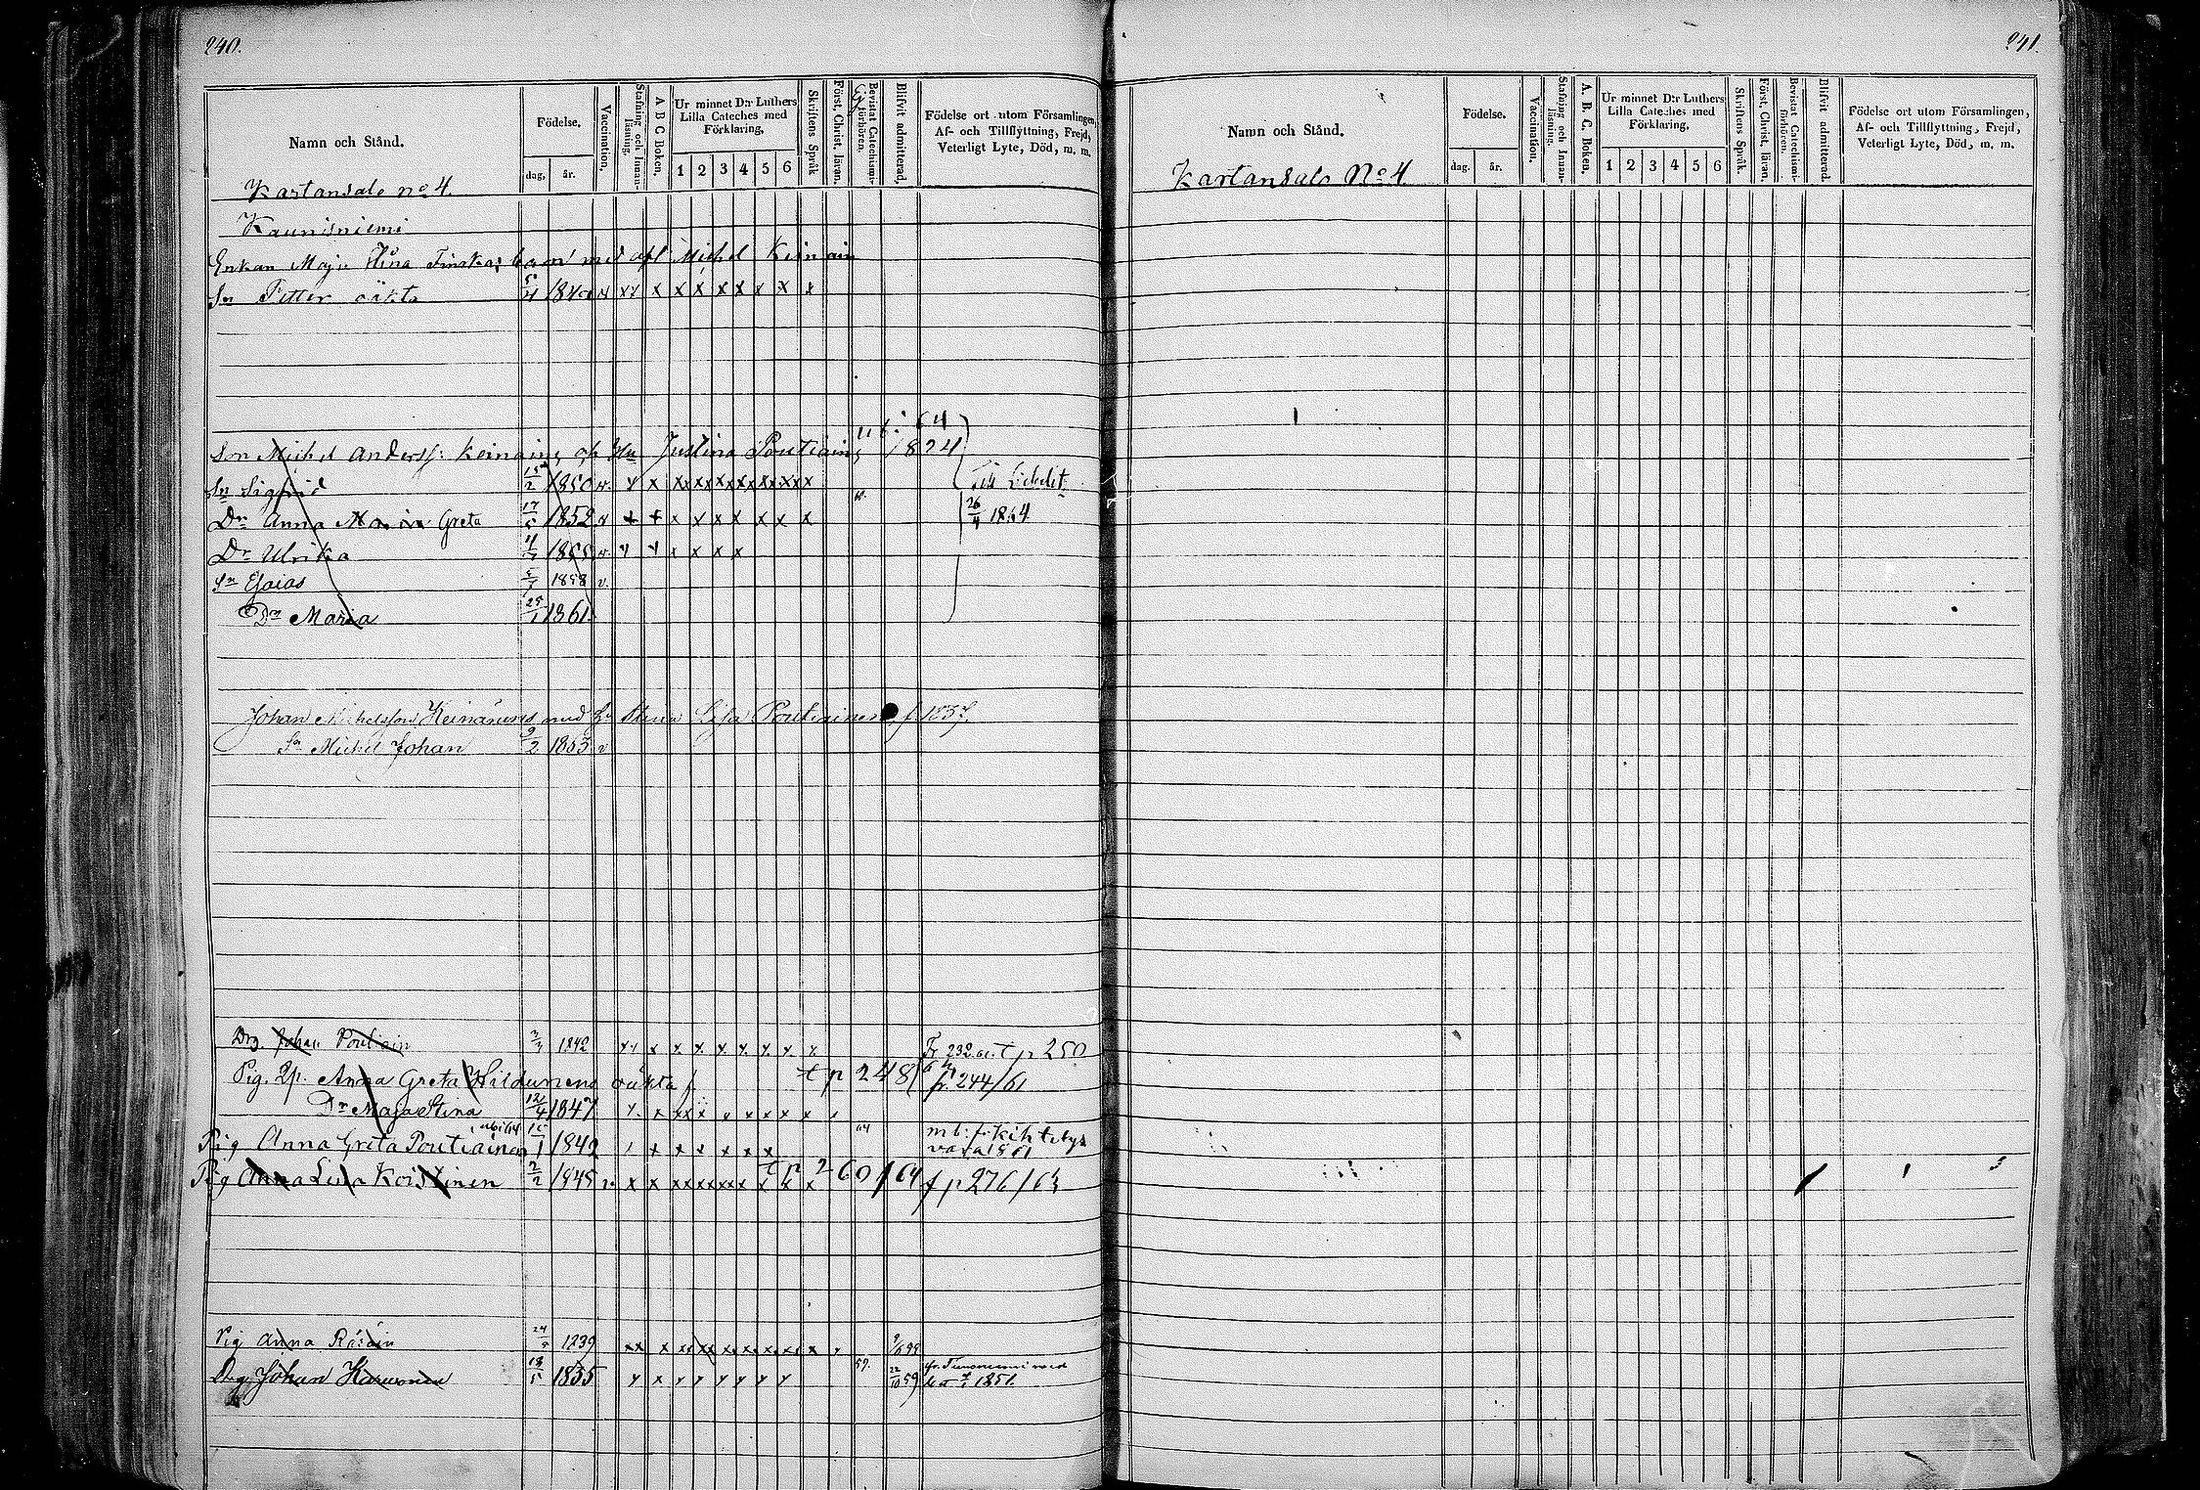 240.
Namn och Stånd.
Födelse.
dag.
år.
Vaccination.
Stafning och Innanläsning.
A B C Boken.
Ur minnet D:r Luthers Lilla Cateches med Förklaring.
1 2 3 4 5 6
Skriftens Språk
Först. Christ. läran.
Bevistat Catechismiförhören.
Blifvit admitterad.
Födelse ort utom Församlingen, Af- och Tillflyttning, Frejd, Veterligt Lyte, Död, m. m.
Kartansalo no 4.
Kaunisniemi
Enkan Maja Stina Finskas barn med afl Michel Keinäin
Sn Petter oäkta 5/4 1840 x x x x x x x x x
Son Michel Anderss: Keinäin, af Hu Justina Poutiain, 1824
ut i 64
Sn Sigfrid 15/2 1850 v. x x xx xx xx xx xx xx x
Till Libelit
26/4 1864
Dr Anna Maria Greta 17/5 1852 v + + x x x x x x x
Dr Ulrika 1855 v. x x x x
Sn Esaias 1858 v.
Dr Maria 25/1 1861
Johan Michelsson Keinänens med hu Stina Lisa Poutiainen f 1837.
Sn Michel Johan 9/2 1853 v
Drg. Johan Poutiain 1842 x x x x x x x x
Fr 232. t p 250
Pig. Anna Greta Hildunens oäkta
t p 248
fr. 244/61
Dr Maja Stina 12/4 1847 x x xx x x x x x x
Pig Anna Greta Poutiainen 15/1 1842 x x x x x x
Pig Anna Lisa Koistinen 2/2 1845 x x xx xx xx x x x
t p 260/64
f p 276/63
Pig Anna Räsäin 24 1839 xx x xx xx xx x x x x
Drg Johan Karvonen 18/5 1835 x x x x x x x x
57.
22/10 59
1851.
241.
Namn och Stånd.
Kartansalo No 4.
Födelse.
dag.
år.
Vaccination.
Stafning och Innanläsning.
A. B. C. Boken.
Ur minnet D:r Luthers Lilla Cateches med Förklaring.
1 2 3 4 5 6
Skriftens Språk.
Först. Christ. läran.
Bevistat Catechismiförhören.
Blifvit admitterad.
Födelse ort utom Församlingen, Af- och Tillflyttning, Frejd, Veterligt Lyte, Död, m. m.